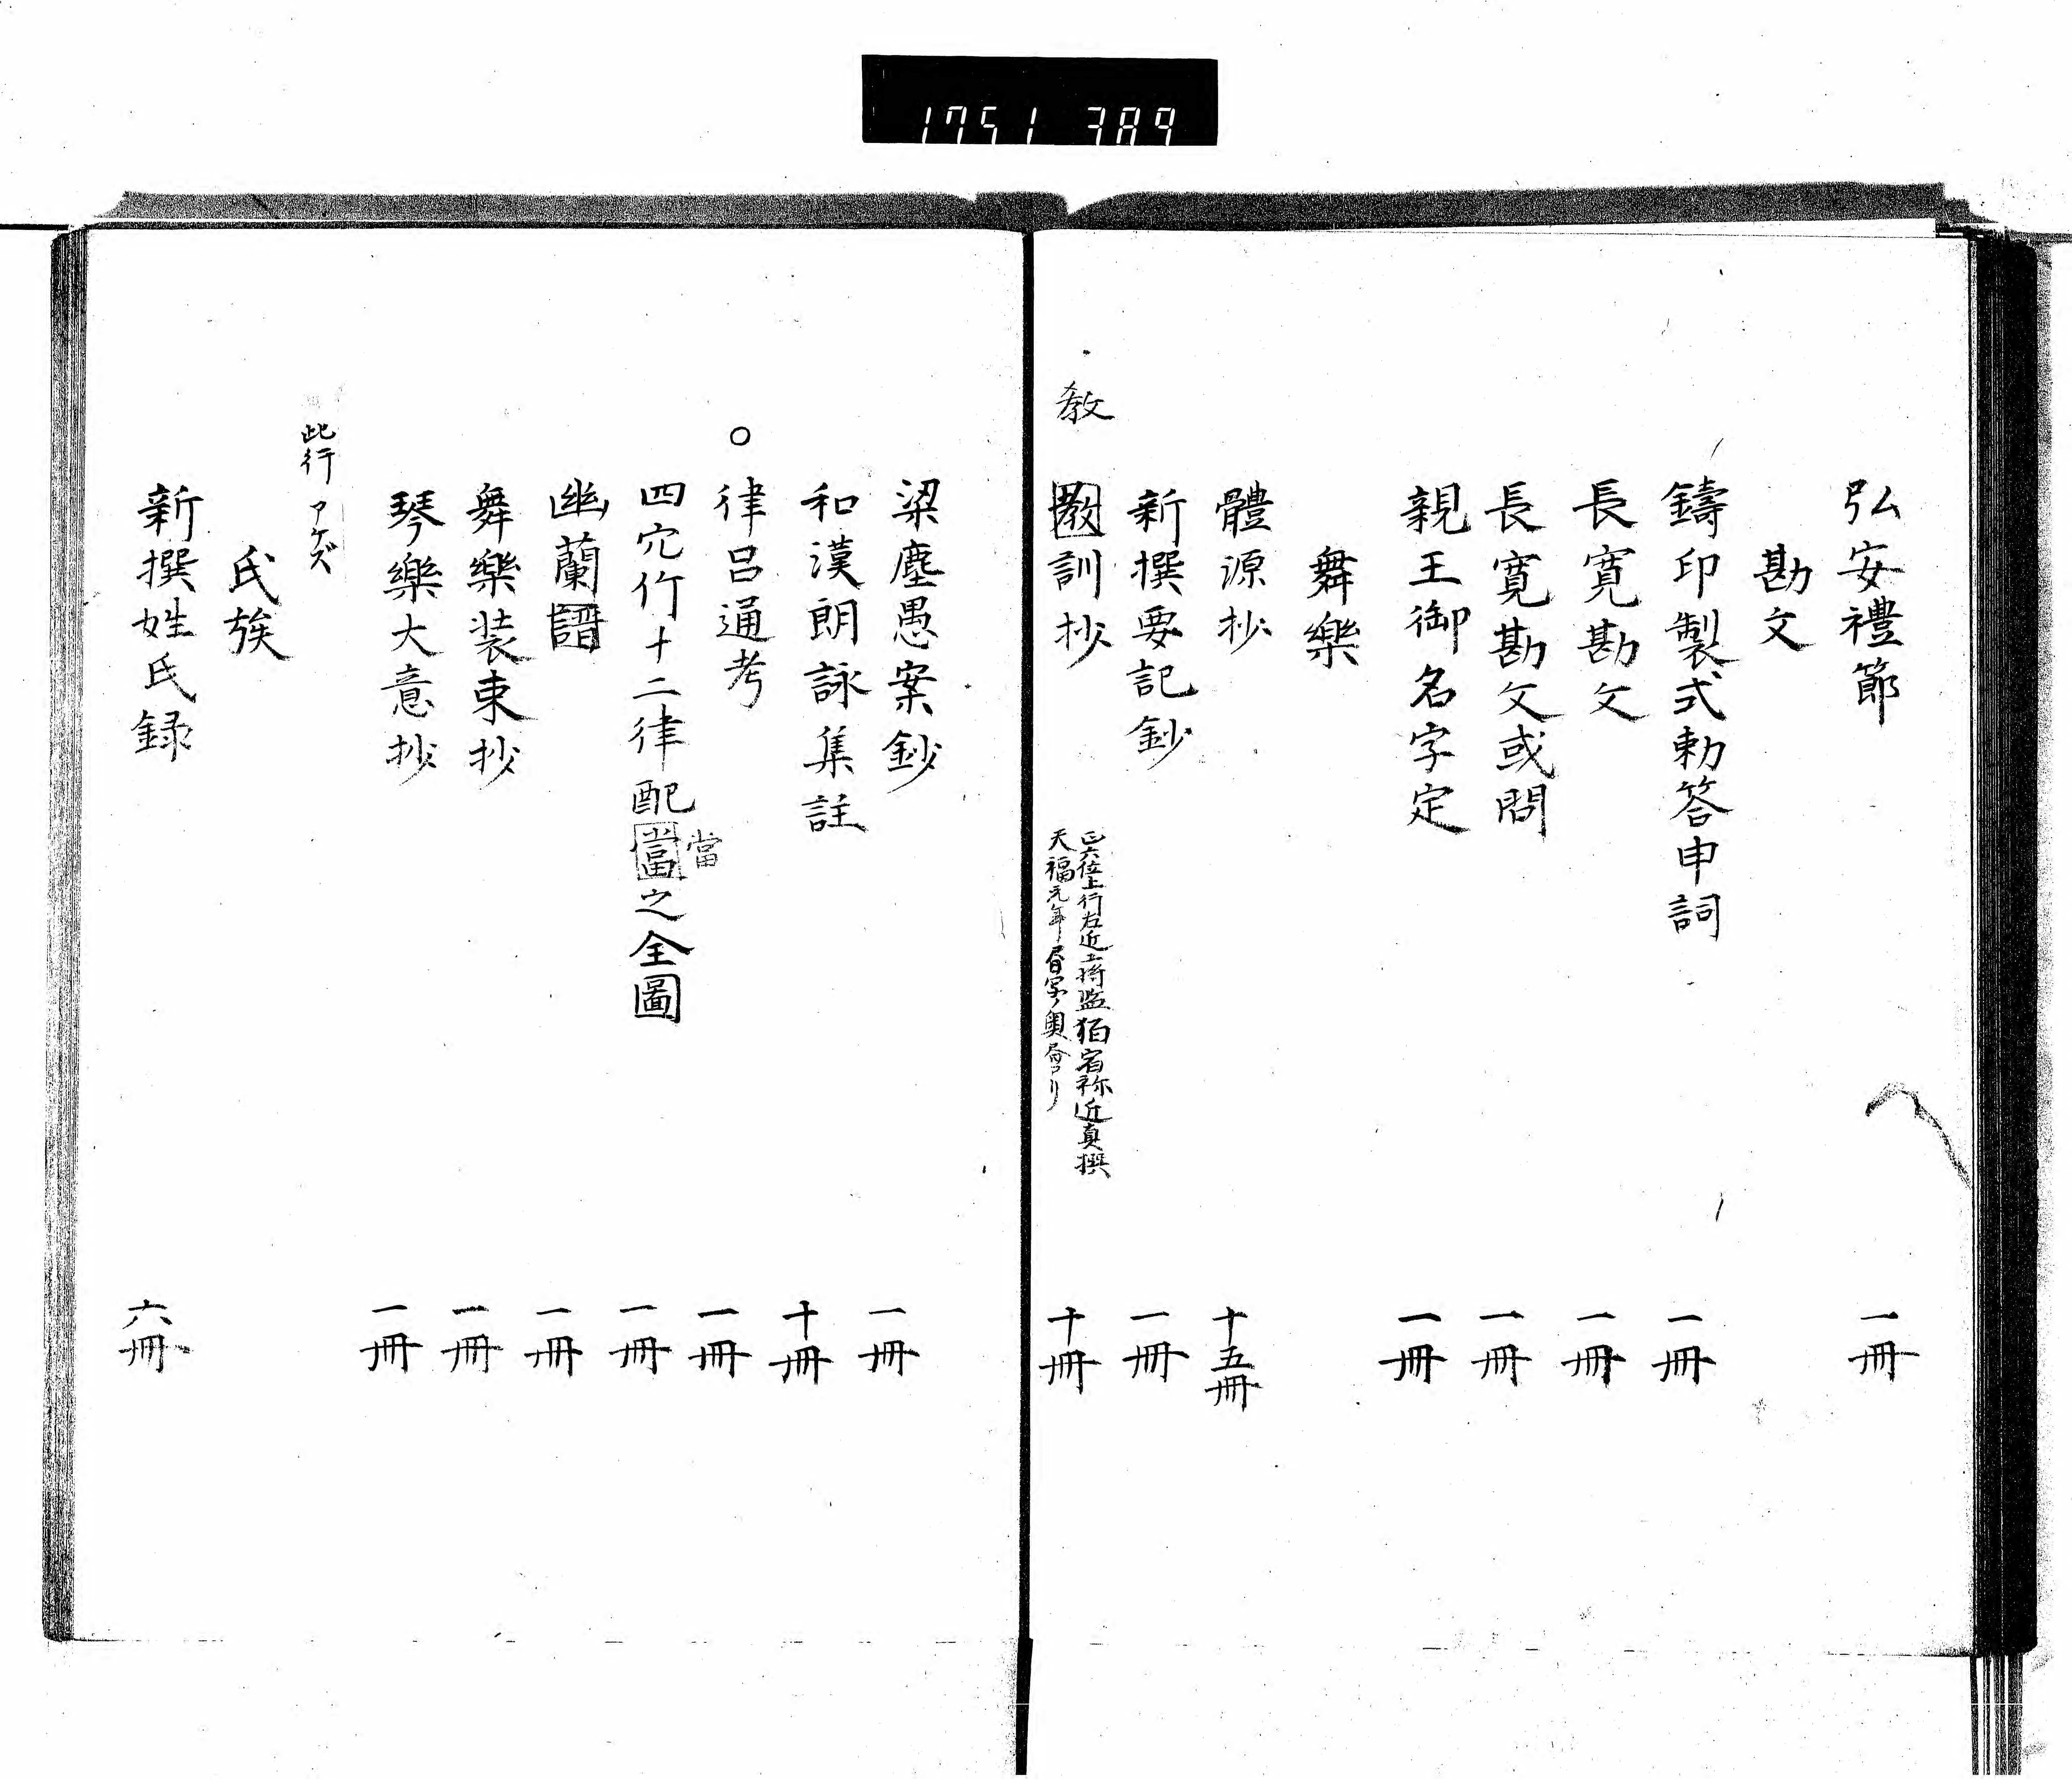 1751 389
弘安禮節 一冊
勘文
鑄印製式勅答申詞 一冊
長寛勘文 一冊
長寛勘文或問 一冊
親王御名字定 一冊
舞樂
體源抄 十五冊
新撰要記鈔 一冊
教
教訓抄 十冊
正六位上行左近上將監狛宿祢近真撰
天福元年書写ノ奥書アリ
梁塵愚案鈔 一冊
和漢朗詠集註 十冊
○律呂通考 一冊
四穴竹十二律配當之全圖 一冊
當
幽蘭譜 一冊
舞樂装束抄 一冊
琴樂大意抄 一冊
此行アケズ
氏族
新撰姓氏録 六冊